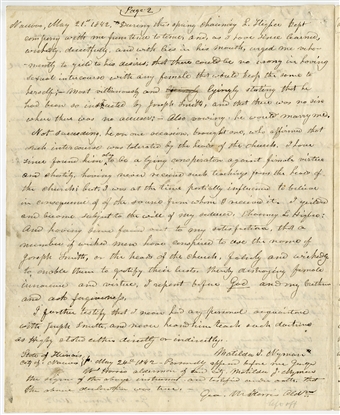 Page 2
Nauvoo, May 21st 1842. "During this spring Chauncy L. Higbee kept
company with me from time to time, and, as I have since learned,
wickedly deceitfully, and with lies in his mouth, urged me vehe-
mently to yield to his desires; that there could be no wrong in having
sexual intercourse with any female that could keep the same to
herself;— most villainously and lyingly stating that he
had been so instructed by Joseph Smith, and that there was no sin
where there was no accuser:— Also vowing he would marry me.
Not succeeding, he, on one occasion, brought one, who affirmed that
such intercourse was tolerated by the heads of the church. I have
since found him also to be a lying conspirator against female virtue
and chastity, having never received such teachings from the heads of
the church; but I was at the time partially influenced to believe
in consequence of the source from whom I received it. I yielded
and became subject to the will of my seducer, Chauncy L. Higbee:
and having since found out to my satisfaction, that a
number of wicked men have conspired to use the name of
Joseph Smith, or the heads of the church, falsely and wickedly
to enable them to gratify their lusts, thereby destroying female
innocence and virtue, I repent before God and my brethren
and ask forgiveness.
I further testify that I never had any personal acquaintance
with Joseph Smith and never heard him teach such doctrines
as Higbee stated either directly or indirectly.
Matilda J. Nyman"
State of Illinois,
City of Nauvoo May 24th 1842— Personally appeared before me, George
W. Harris alderman of said city, Matilda J. Nyman
the signer of the above instrument, and testified under oath, that
the above declaration was true.
Geo. W. Harris Aldm